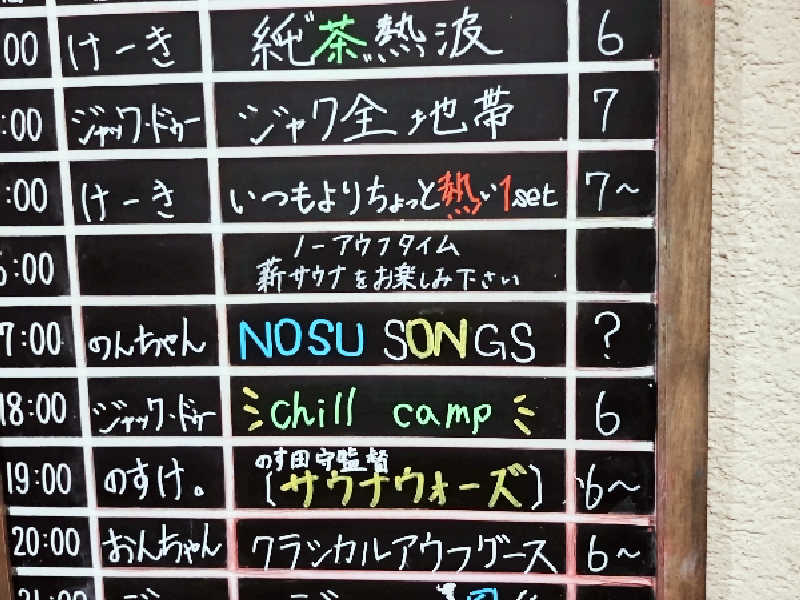 00 けーき 純喫茶熱波 6
:00 ジャック・ドゥー ジャワ全地帯 7
:00 けーき いつもよりちょっと熱い1set 7~
6:00 ノーアウフタイム
薪サウナをお楽しみ下さい
7:00 のんちゃん NOSU SONGS ?
18:00 ジャック・ドゥー chill camp 6
19:00 のすけ。 のす田守監督
〔サウナウォーズ〕 6~
20:00 おんちゃん クラシカルアウフグース 6~